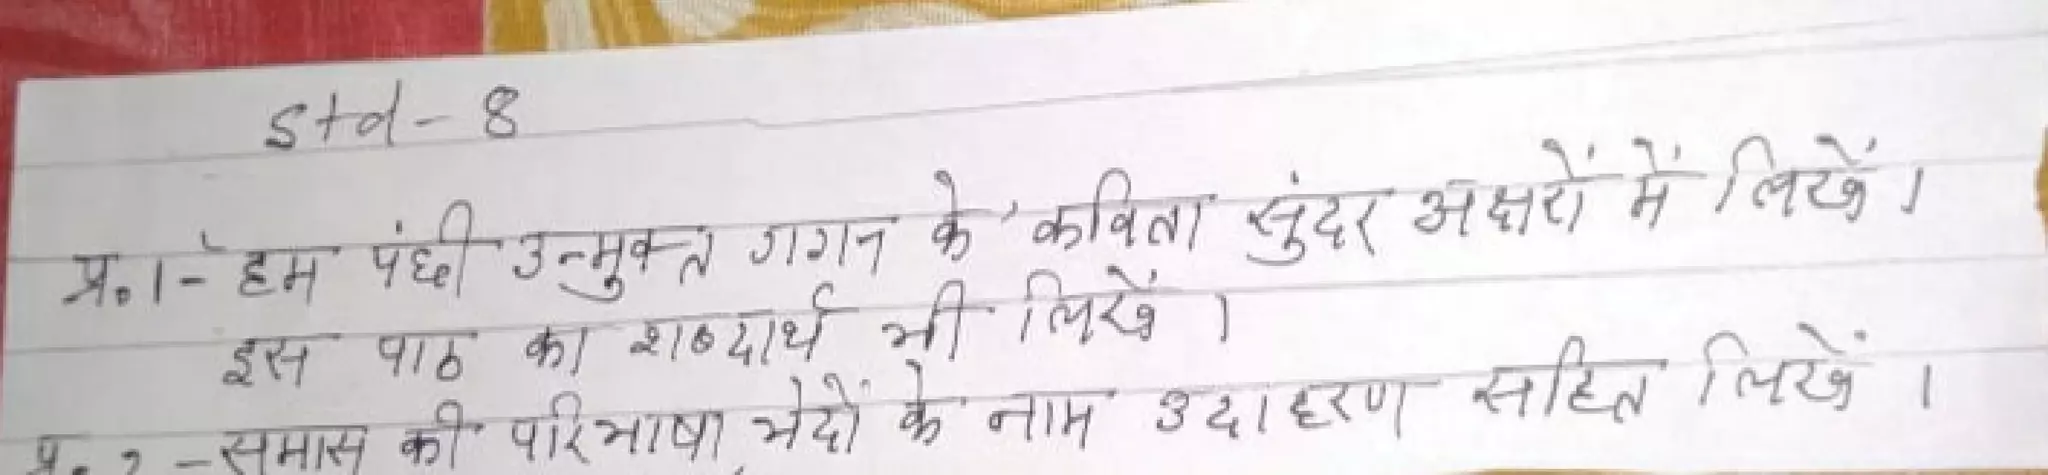 Std - 8
प्र.1- हम पंछी उन्मुक्त गगन के' कविता सुंदर अक्षरों में लिखें।
इस पाठ का शब्दार्थ भी लिखें।
प्र. 2 - समास की परिभाषा, भेदों के नाम उदाहरण सहित लिखें।